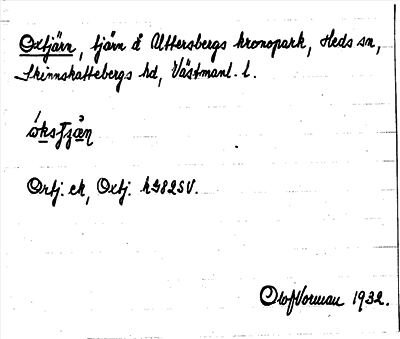 Oxtjärn, tjärn å Uttersbergs kronopark, Heds sn,
Skinnskattebergs hd, Västmanl. l.
Ortj. ek, Oxtj. k382SV.
Olof Vorman 1932.